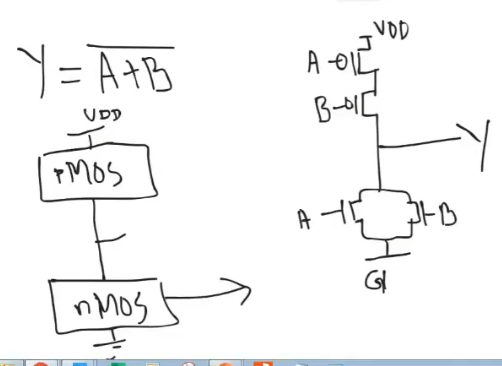 Y = A+B
VDD
pMOS
nMOS
VDD
A
B
Y
A
B
G